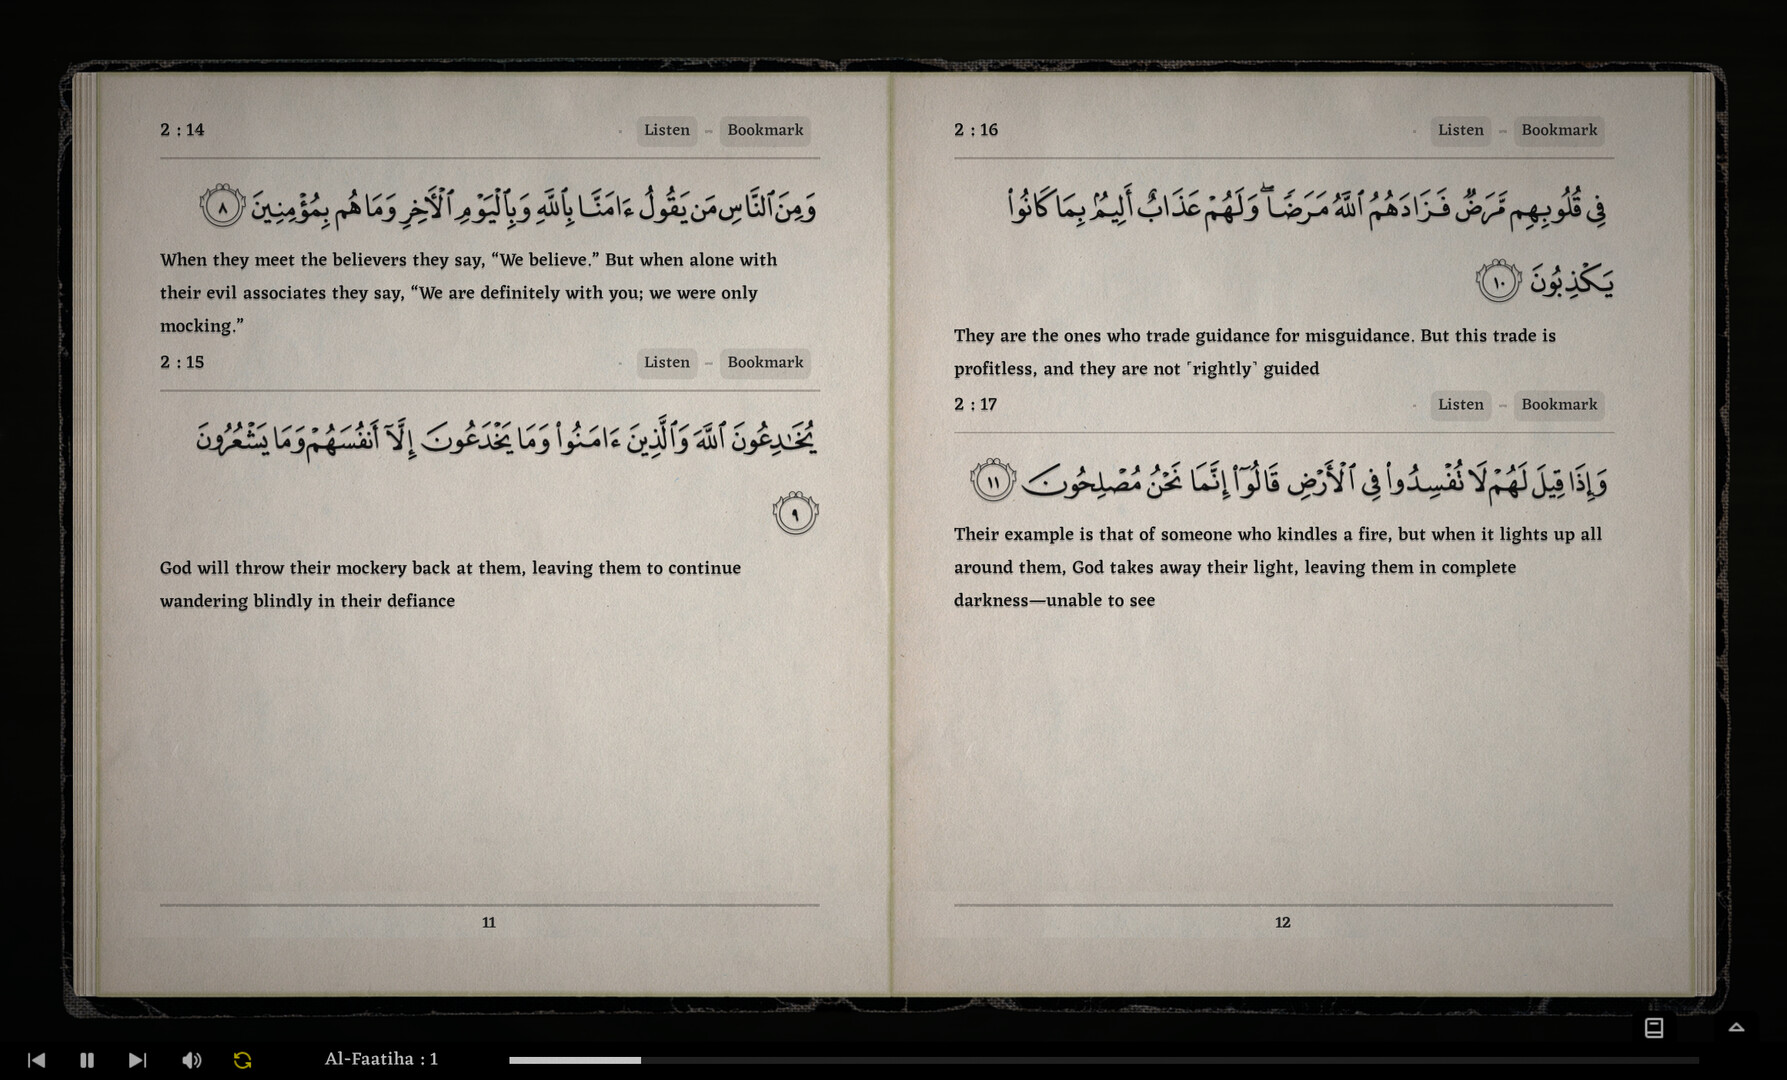 2 : 14
Listen
Bookmark
وَمِنَ ٱلنَّاسِ مَن يَقُولُ ءَامَنَّا بِٱللَّهِ وَبِٱلْيَوْمِ ٱلْأَخِرِ وَمَا هُم بِمُؤْمِنِينَ ٨
When they meet the believers they say, “We believe.” But when alone with
their evil associates they say, “We are definitely with you; we were only
mocking.”
2 : 15
Listen
Bookmark
يُخَٰدِعُونَ ٱللَّهَ وَٱلَّذِينَ ءَامَنُوا۟ وَمَا يَخْدَعُونَ إِلَّآ أَنفُسَهُمْ وَمَا يَشْعُرُونَ
٩
God will throw their mockery back at them, leaving them to continue
wandering blindly in their defiance
11
2 : 16
Listen
Bookmark
فِى قُلُوبِهِم مَّرَضٌ فَزَادَهُمُ ٱللَّهُ مَرَضًا ۖ وَلَهُمْ عَذَابٌ أَلِيمٌۢ بِمَا كَانُوا۟
يَكْذِبُونَ ١٠
They are the ones who trade guidance for misguidance. But this trade is
profitless, and they are not ˹rightly˺ guided
2 : 17
Listen
Bookmark
وَإِذَا قِيلَ لَهُمْ لَا تُفْسِدُوا۟ فِى ٱلْأَرْضِ قَالُوٓا۟ إِنَّمَا نَحْنُ مُصْلِحُونَ ١١
Their example is that of someone who kindles a fire, but when it lights up all
around them, God takes away their light, leaving them in complete
darkness—unable to see
12
Al-Faatiha : 1